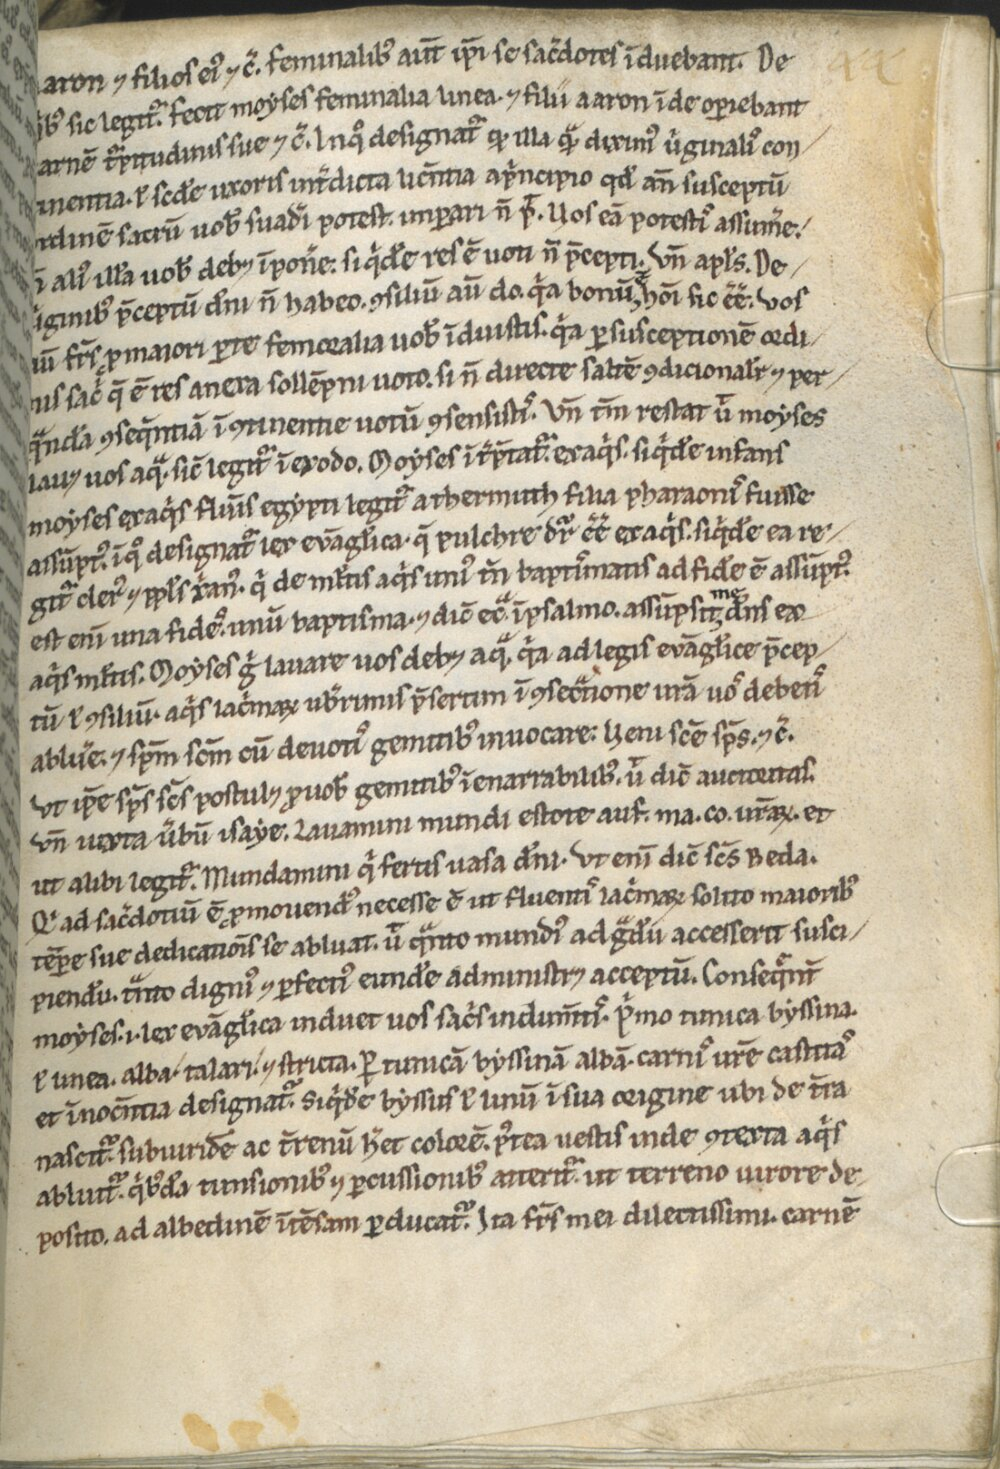 aron ⁊ filios ei᷒ ⁊ c̃. feminalib᷒ aut̃ ip̃i se sac̃dotes ĩduebant. De
ib᷒ sic legit᷑. fecit moyses feminalia linea. ⁊ filii aaron ĩde op̱iebant
arnẽ t᷑pitudinis sue ⁊ c̃. In qͦ designat᷑ qꝛ illa q̃ dixim᷒ ũginal᷒ con/
inentia. ł scd̃e uxoris int̃dicta licñtia a p̃ncipio qd̃ añ susceptũ
rdinẽ sacrũ uob̃ suad̃i potest. imp̱ari ñ p̃t. Vos eã potest᷒ assum̃e.
ĩ al᷒ ill̃a uob̃ debꝫ ĩpoñe. siq̃d̃e res ẽ uoti ñ p̃cepti. Vñ apl̃s. De/
iginib᷒ p̃ceptũ dñi ñ habeo. ꝯsiliũ aũ do. q̃a bonũ ẽ hõi sic ẽẽ. Vos
iũ fr̃s ꝓ maiori ꝑte femoralia uob̃ ĩduistis. q̃a ꝑ susceptionẽ ordi/
nis sac̃ q̃ ẽ res anexa sollẽpni uoto. si ñ directe saltẽ ꝯdicionalr̃ ⁊ per/
q̃nd̃a ꝯseq̃ntiã ĩ ꝯtinentie uotũ ꝯsensist᷒. Vñ tm̃ restat ũ moyses
lauꝫ uos aq̃. sic̃ legit᷑ ĩ exodo. Moyses ĩt̃p̃tat᷑. ex aq̃s. siq̃d̃e infans
moyses ex aq̃s fluĩs egypti legit᷑ a thermuth filia pharaonis fuisse
assũpt᷒. ĩ qͦ designat᷑ lex evãgl̃ica. q̃ pulchre dr̃ ẽẽ ex aq̃s. siq̃d̃e ea re/
git᷑ cler᷒ ⁊ ppl̃s x̃an᷒. q̃ de ml̃tis aq̃s uni᷒ tm̃ baptismatis ad fid̃e ẽ assũpt᷒.
est enĩ una fides. unũ baptisma. ⁊ dic̃ ecc̃a ĩ psalmo. assũpsit me dñs ex
aq̃s ml̃tis. Moyses g̃ lauare uos debꝫ aq̃. q̃a ad legis evãgl̃ice p̃cep/
tũ ł ꝯsiliũ. aq̃s lac̃maꝝ ub̃rimis p̃sertim ĩ ꝯsec̃tione ur̃a uos debet᷒
abluẽ. ⁊ sp̃m sc̃m cũ deuotis gemitib᷒ inuocare. Veni sc̃e sp̃s. ⁊ c̃.
Vt ip̃e sp̃s sc̃s postulꝫ ꝓ uob̃ gemitib᷒ ĩenarrabilib᷒. ũ dic̃ auctoritas.
Vñ iuxta ũbũ isaye. Lauamini mundi estote auf. ma. co. ur̃aꝝ. et
ut alibi legit᷑. Mundamini q̃ fertis uasa dñi. Vt enĩ dic̃ sc̃s Beda.
Q᷑ ad sac̃dotiũ ẽ ꝓmouend᷒ necesse ẽ ut fluentis lac̃maꝝ solito maiorib᷒
tẽpe sue dedicatiõis se abluat. ũ q̃nto mundi᷒ ad g̃dũ accesserit susci/
piendũ. tãto digni᷒ ⁊ ꝑfecti᷒ eund̃e administrꝫ acceptũ. Conseq̃nt̃
moyses .i. lex evãgl̃ica induet uos sac̃s indumtis. p̃mo tunica byssina.
ł linea. alba. talari. ⁊ stricta. ꝑ tunicã byssinã albã. carnis ur̃e castitas
et ĩnocñtia designat᷑. Siq̃d̃e byssus ł linũ ĩ sua origine ubi de t̃ra
nascit᷑. subuirid̃e ac t̃renũ h̃et colorẽ. p̃tea uestis inde ꝯtexta aq̃s
abluit᷑. q̃b᷒d̃a tunsionib᷒ ⁊ ꝑcussionib᷒ atterit᷑. ut terreno uirore de/
posito. ad albedinẽ ĩtẽsam ꝑducat᷑. Ita fr̃s mei dilectissimi. carnẽ